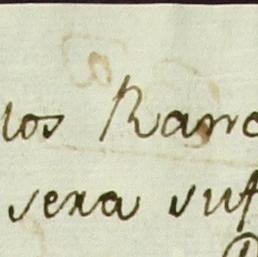 los Ranc
sera suf